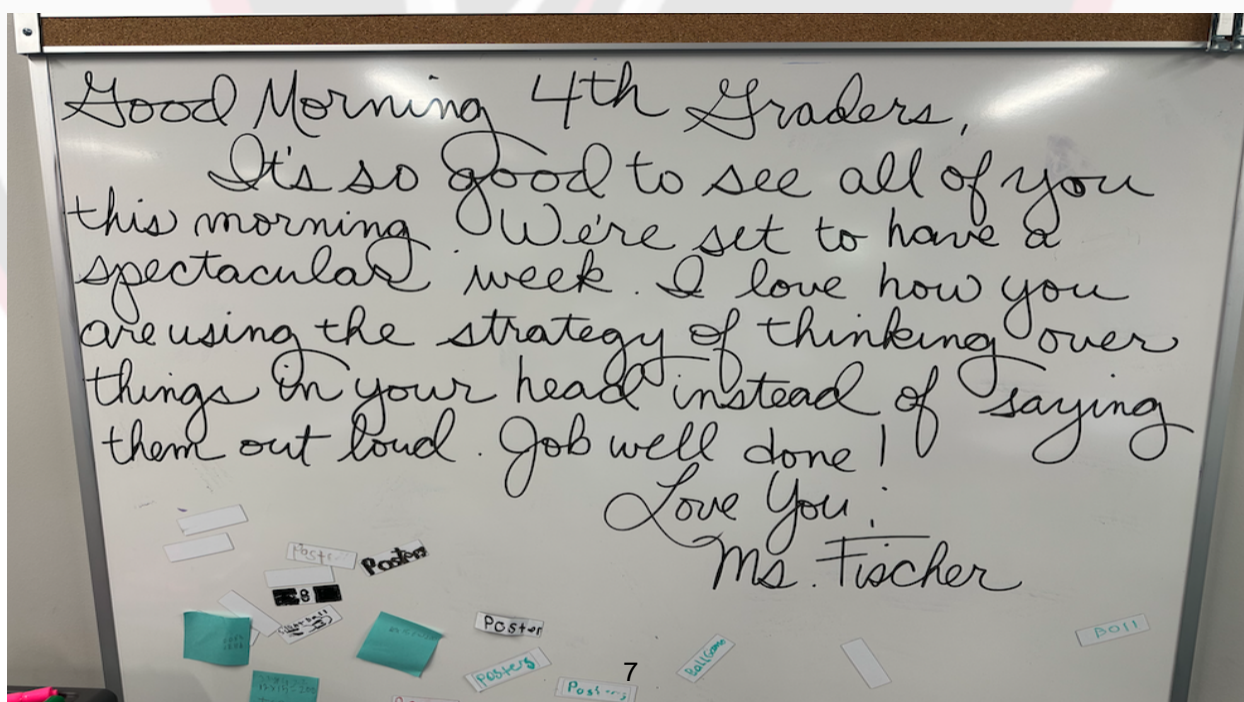 Good Morning 4th Graders,
It's so good to see all of you
this morning We're set to have a
spectacular week. I love how you
are using the strategy of thinking over
things in your head instead of saying
them out loud. Job well done!
Love You,
Ms. Fischer
Poster
Posters
8
Poster
Posters
7
Posters
Ball Game
Boll